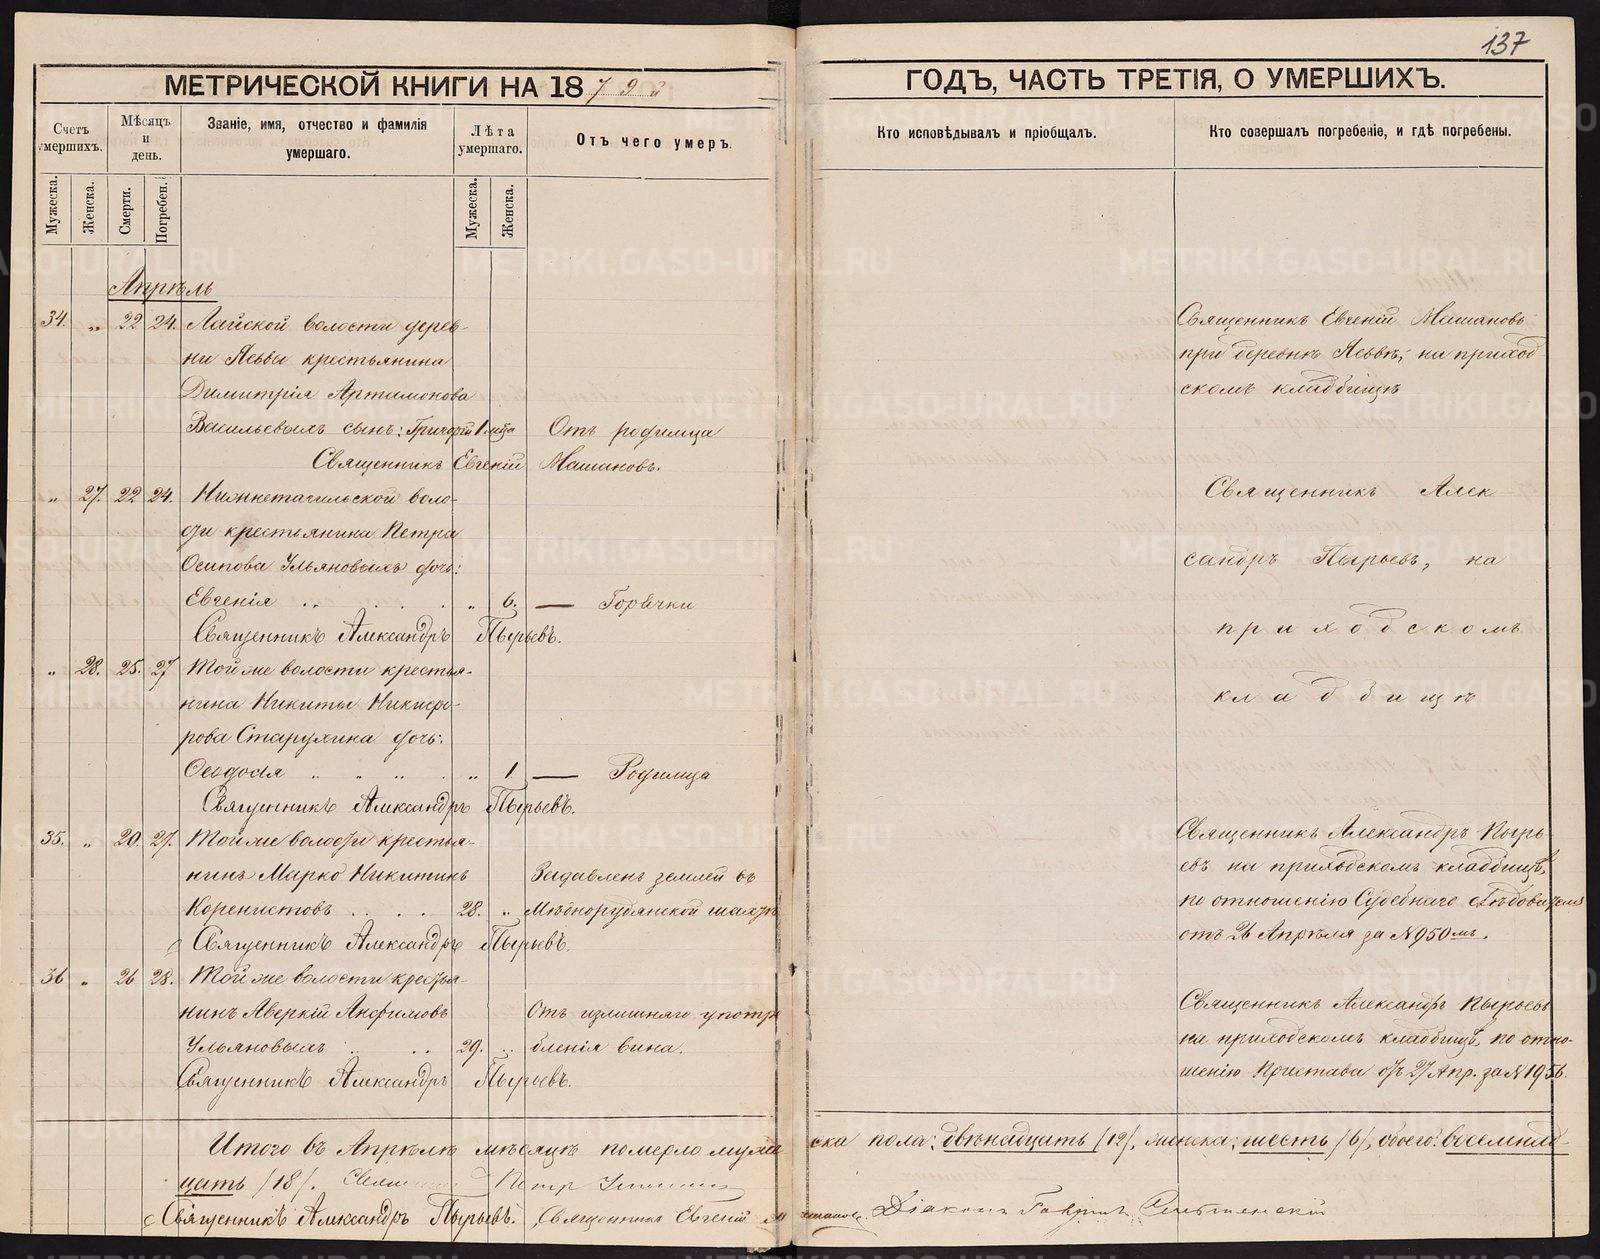 137
МЕТРИЧЕСКОЙ КНИГИ НА 18
ГОДЪ, ЧАСТЬ ТРЕТІЯ, О УМЕРШИХЪ.
Счетъ умершихъ.
Мѣсяцъ и день.
Званіе, имя, отчество и фамилія умершаго.
Лѣта умершаго.
Отъ чего умеръ.
Кто исповѣдывалъ и пріобщалъ.
Кто совершалъ погребеніе, и гдѣ погребены.
Мужеска.
Женска.
Смерти.
Погребен.
Мужеска.
Женска.
Апрѣль
34. „ 22 24. Лайской волости дерев-
ни Лебы крестьянина
Димитрія Артимонова
Васильевыхъ сынъ: Григорій 1 мѣсяца Отъ родимца
Священникъ Евгеній Машановъ.
Священникъ Евгеній Машановъ
при деревнѣ на приход
скомъ кладбищѣ
„ 27. 22 24. Нижнетагильской воло-
сти крестьянина Петра
Осипова Ульяновыхъ дочь:
Евгенія „ 6. — Горячки
Священникъ Александръ Пырьевъ.
Священникъ Алек
сандръ Пырьевъ, на
приходскомъ
кладбищѣ
„ 28. 25. 27 Той же волости крестья-
нина Никиты Никифо-
рова Старухина дочь:
Ѳеодосія „ 1 — Родимца
Священникъ Александръ Пырьевъ.
35. „ 20. 27. Той же волости крестья-
нинъ Марко Никитинъ
Коренистовъ 28. „ Задавленъ землей въ
Мѣднорудянской шахтѣ
Священникъ Александръ Пырьевъ.
Священникъ Александръ Пырь-
евъ на приходскомъ кладбищѣ,
по отношенію Судебнаго Слѣдователя
отъ 26 Апрѣля за № 950мъ.
36 „ 26 28. Той же волости кресть-
нинъ Аверкій Анфимовъ
Ульяновыхъ 29. „ Отъ излишняго употре
бленія вина.
Священникъ Александръ Пырьевъ.
Священникъ Александръ Пырьевъ
на приходскомъ кладбищѣ, по отно-
шенію Пристава отъ 27 Апр. за № 1956.
Итого въ Апрѣлѣ мѣсяцѣ померло муже
ска пола: двѣнадцать /12/, женска: шесть /6/, обоего: восемнад-
цать /18/. Петр
Священникъ Александръ Пырьевъ. Священникъ Евгеній Машановъ. Діаконъ Гавріилъ
METRIKI.GASO-URAL.RU